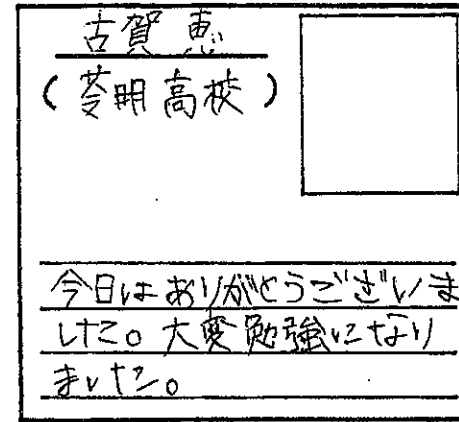 古賀 恵
(苓明高校)
今日はありがとうございま
した。大変勉強になり
ました。